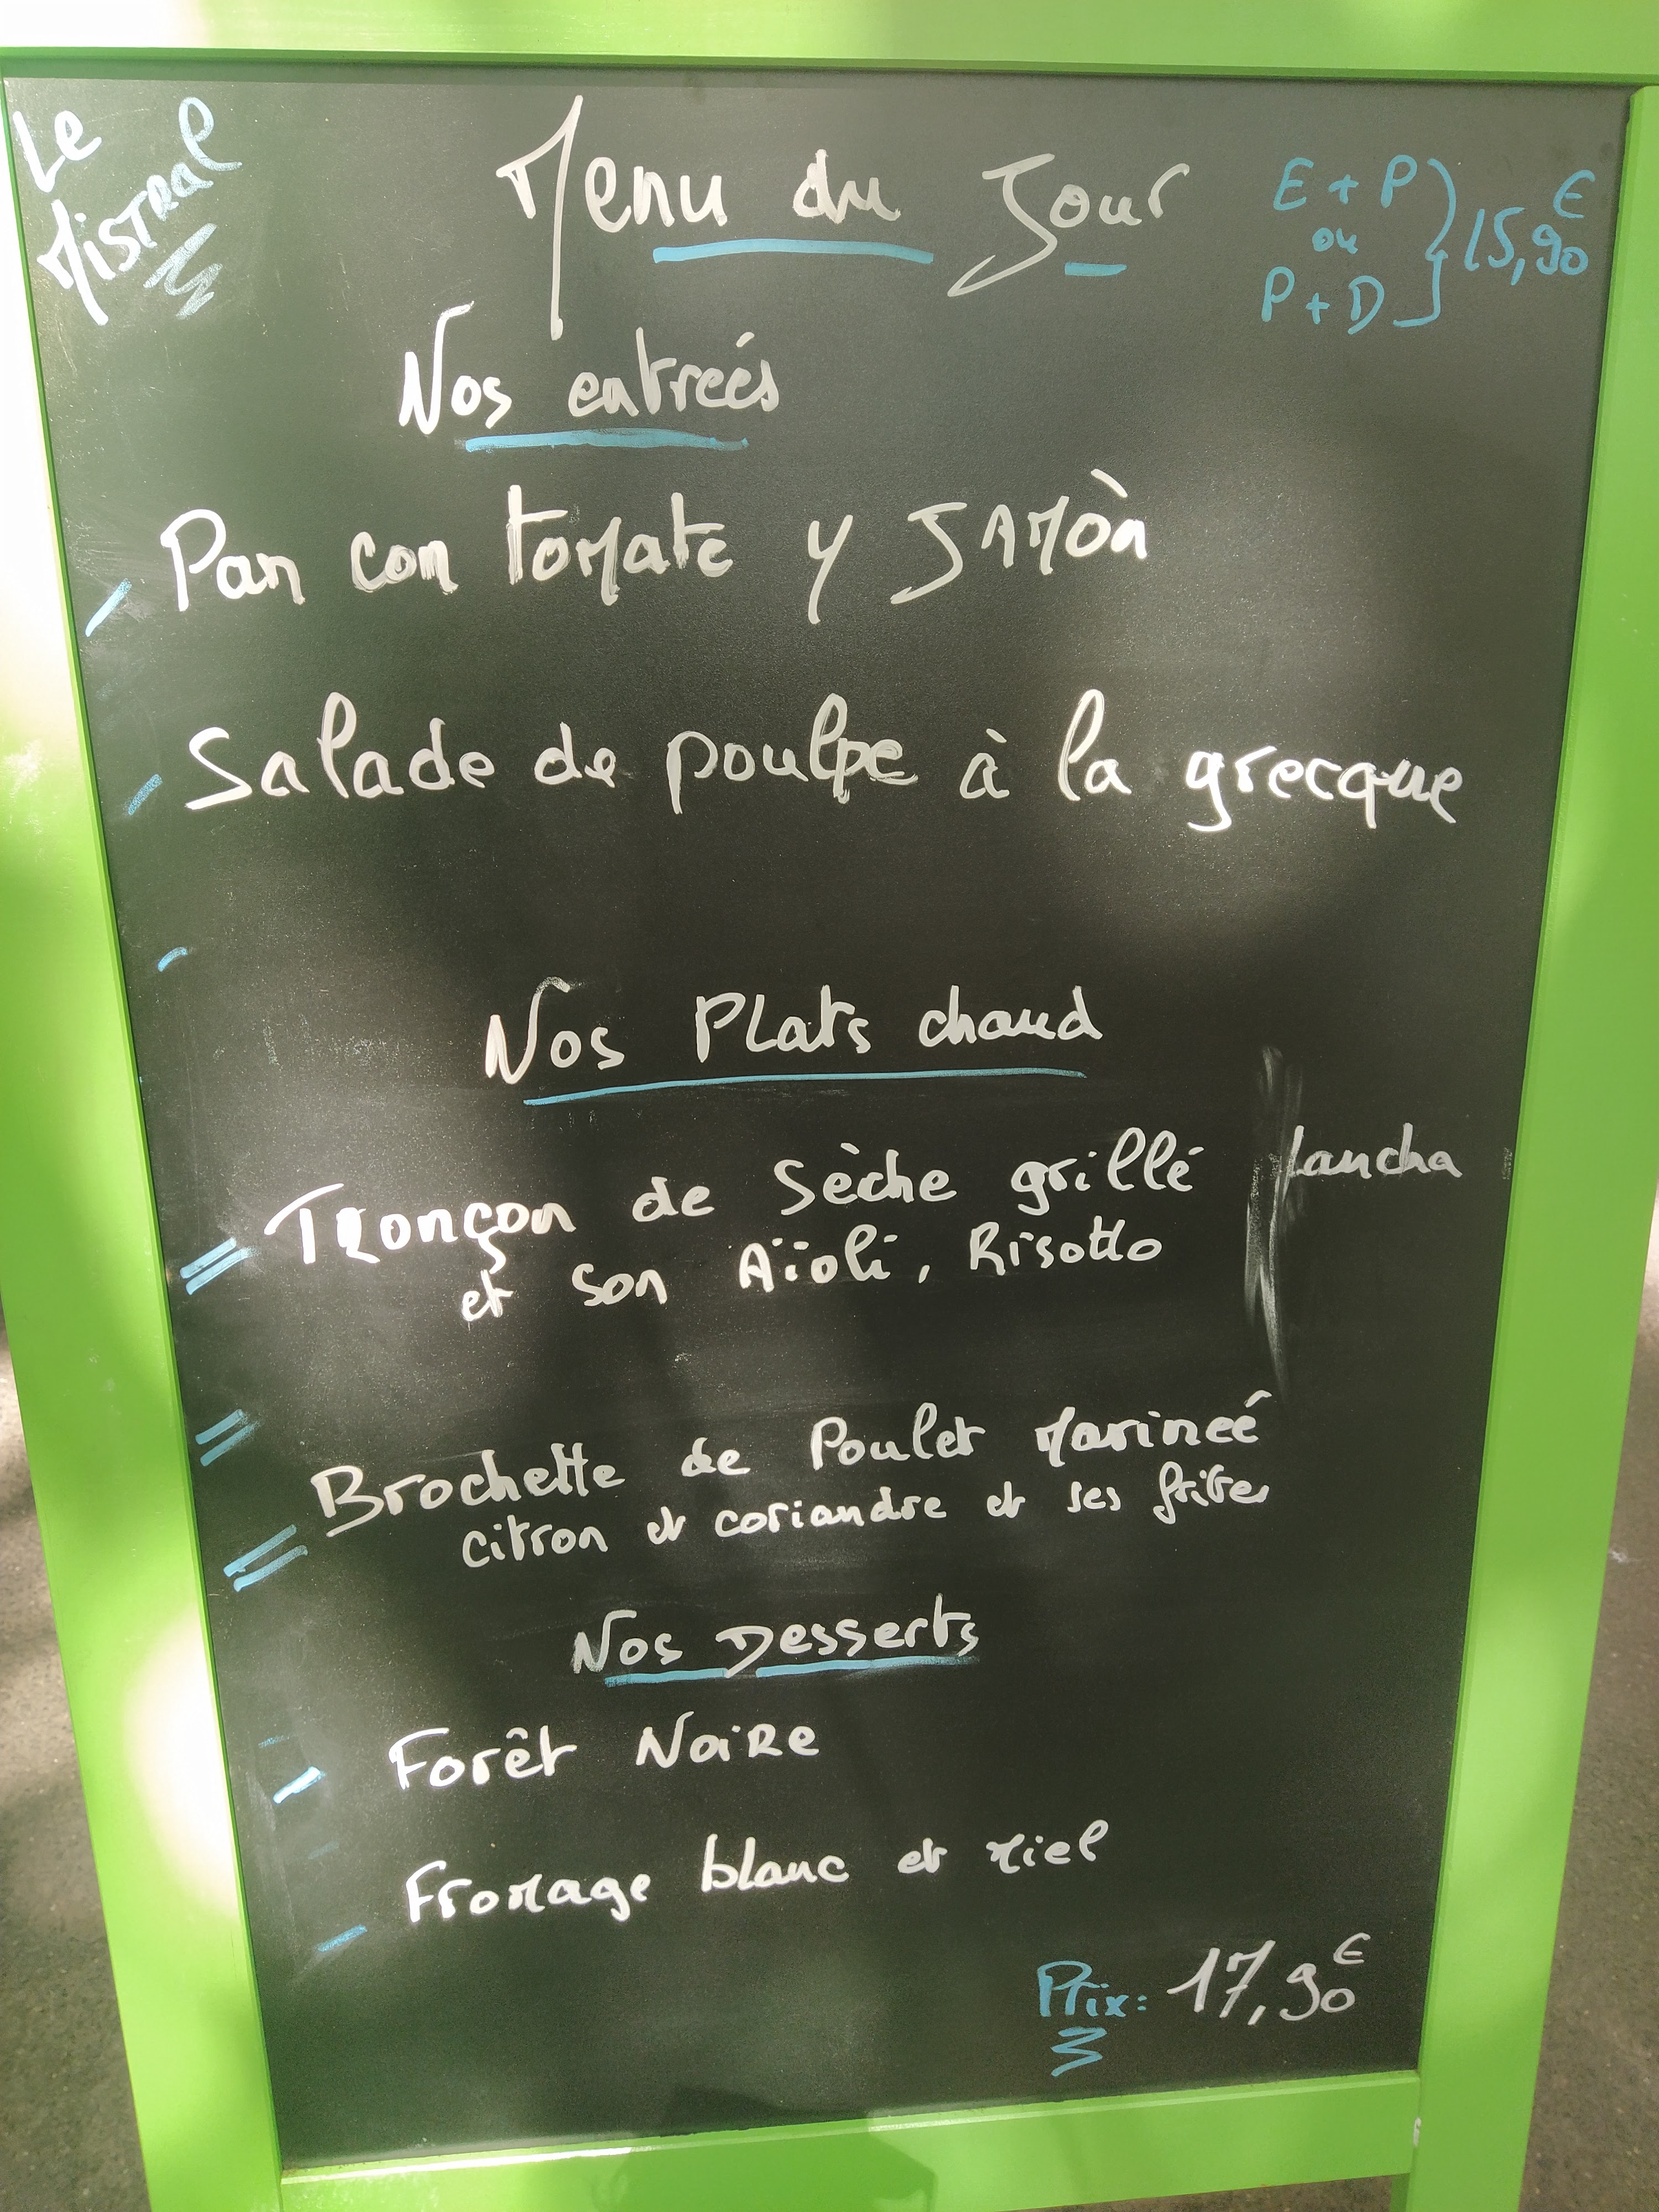 Le
Mistral
Menu du Jour
E + P
ou
P + D
15,90€
Nos entreés
Pan con tomate y JAMòn
Salade de poulpe à la grecque
Nos Plats chaud
Tronçon de Sèche grillé
et son Aïoli, Risotto
Brochette de Poulet Marineé
citron et coriandre et ses frites
Nos Desserts
Forêt Noire
Fromage blanc et miel
Prix: 17,90€